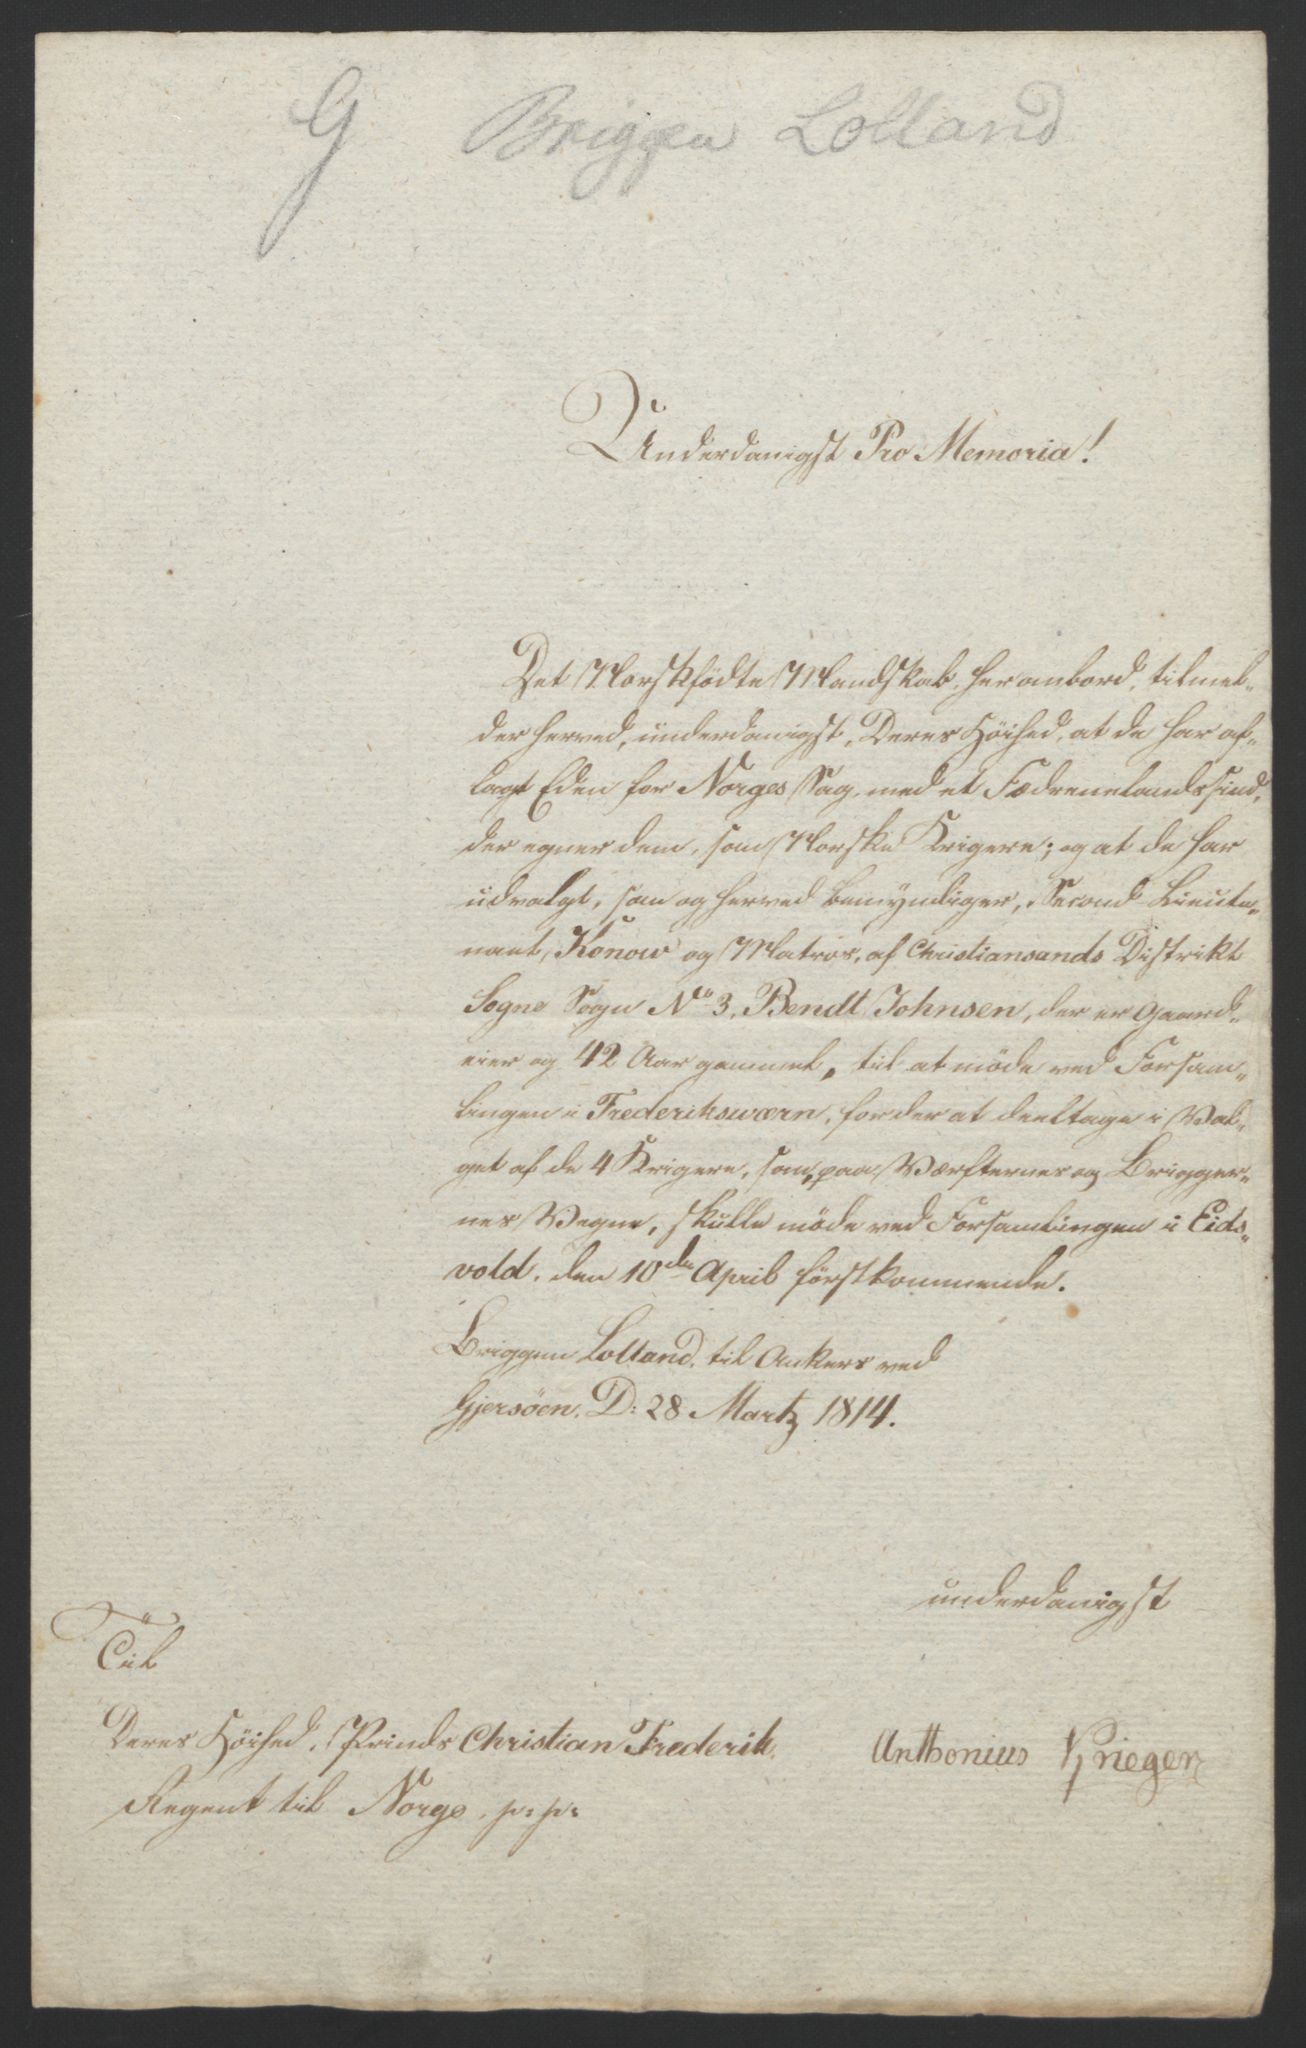 G Briggen Lolland
Underdanigst Pro Memoria!
Det Norskfödte Mandskab, her ombord, tilmel-
der herved, underdanigst, Deres Höihed, at de har af-
lagt Eden for Norges Sag, med et Fædrenelandssind,
der egner dem, som Norske Krigere; og at de har
udvalgt, som og herved bemyndiger, Second Lieute-
nant, Konow og Matros, af Christiansands Distrikt
Sogne Sogn No 3, Bendt Johnsen, der er Gaard-
eier og 42 Aar gammel, til at möde ved Forsam-
lingen i Frederiksværn, for der at deeltage i Val-
get af de 4 Krigere, som, paa Værfternes og Brigger-
nes Vegne, skulle möde ved Forsamlingen i Eids-
vold, den 10de April förstkommende.
Briggen Lolland, til Ankers ved
Gjersöen, D: 28 Martz 1814.
underdanigst
Til
Deres Höihed, Prinds Christian Frederik, Anthonius Krieger
Regent til Norge, p: p: